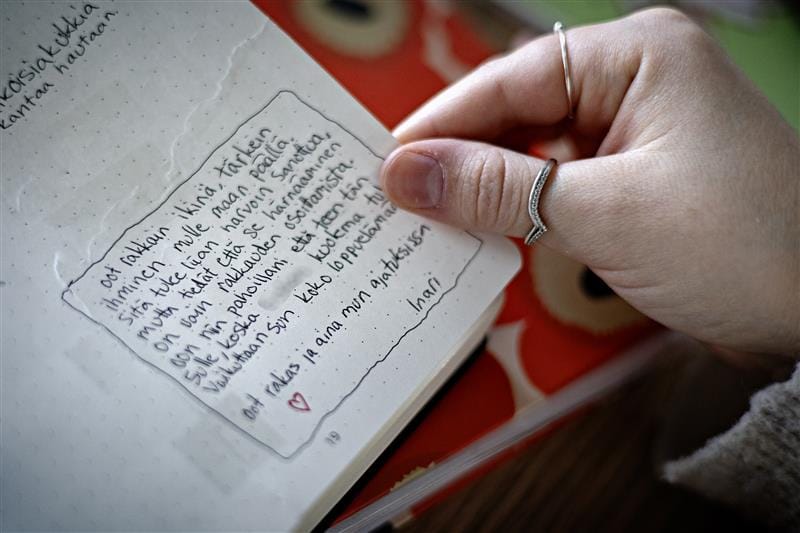 koisiakukkia
kantaa hautaan
oot rakkain ikinä, tärkein
ihminen mulle maan päällä.
sitä tulee liian harvoin sanottua,
mutta tiedät että se härnääminen
on vain rakkauden osoitamista.
oon niin pahoillani että teen tän
sulle, koska kuolema
vaikuttaan sun koko loppuelämää
oot rakas ja aina mun ajatuksissa
Inari
19